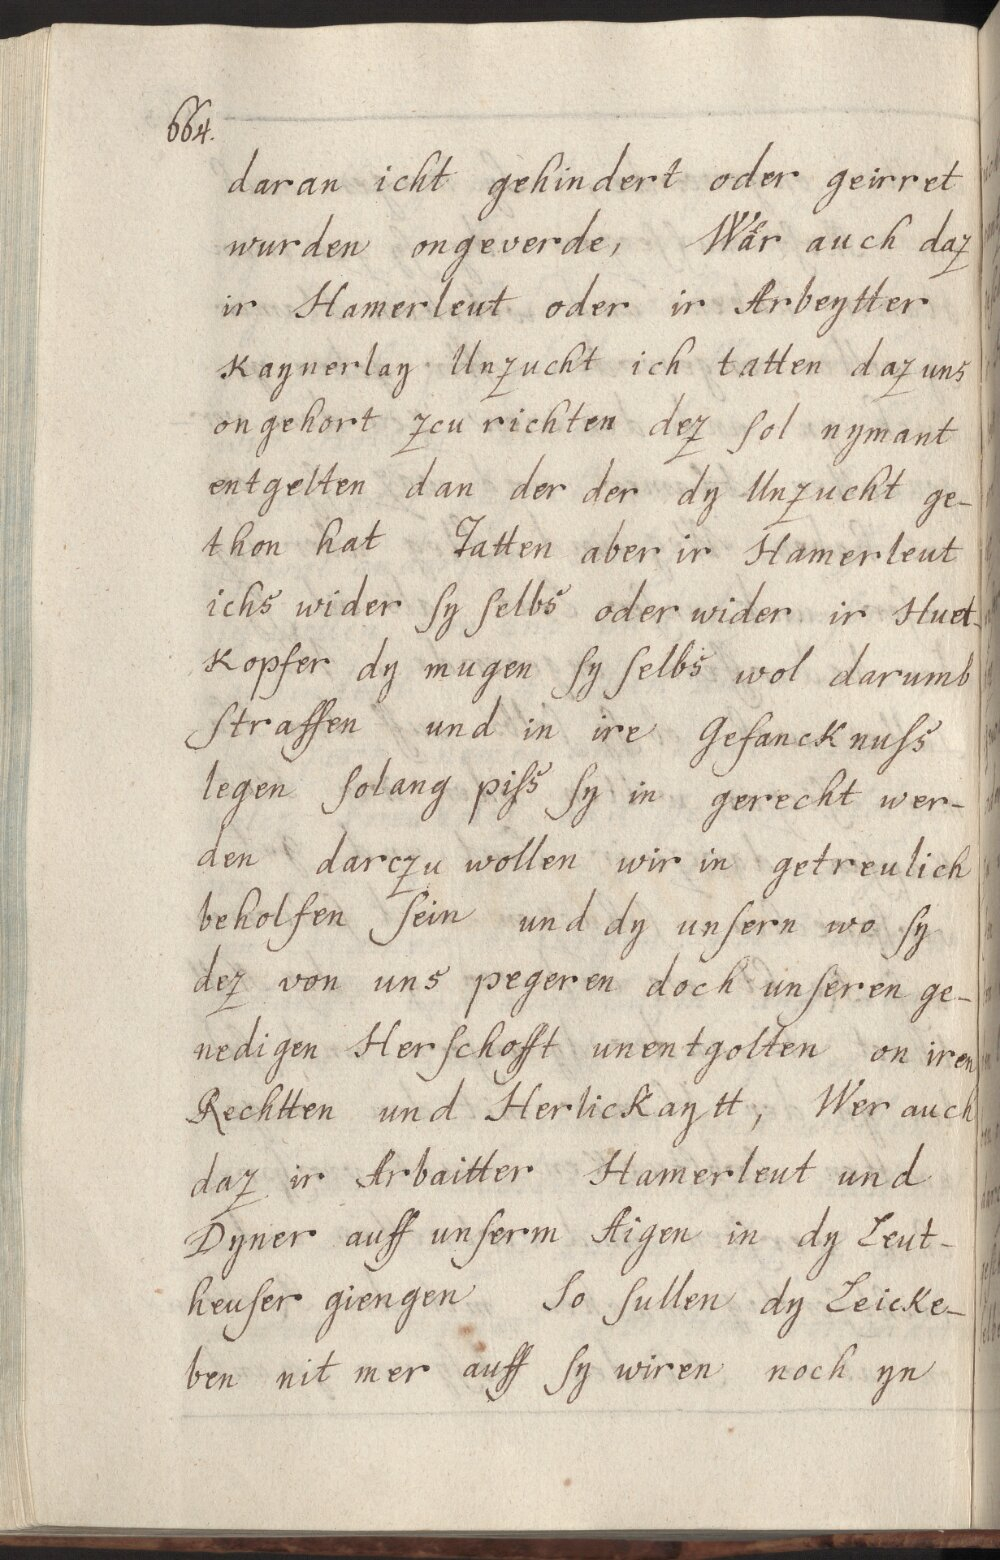 664.
daran icht gehindert oder geirret
wurden ongeverde, Wår auch daz
ir Hamerleut oder ir Arbeytter
Kaynerlay Unzucht ich tatten daz uns
ongehort zcu richten dez sol nymant
entgelten dan der der dy Unzucht ge-
thon hat Tatten aber ir Hamerleut
ichs wider sy selbs oder wider ir Huet-
Kopfer dy mugen sy selbs wol darumb
straffen und in ire Gefancknuss
legen solang piss sy in gerecht wer-
den darczu wollen wir in getreulich
beholfen sein und dy unsern wo sy
dez von uns pegeren doch unseren ge-
nedigen Herschofft unentgolten on iren
Rechtten und Herlickaytt, Wer auch
daz ir Arbaitter Hamerleut und
Dyner auff unserm Aigen in dy Leut-
heuser giengen So sullen dy Leicke-
ben nit mer auff sy wiren noch yn